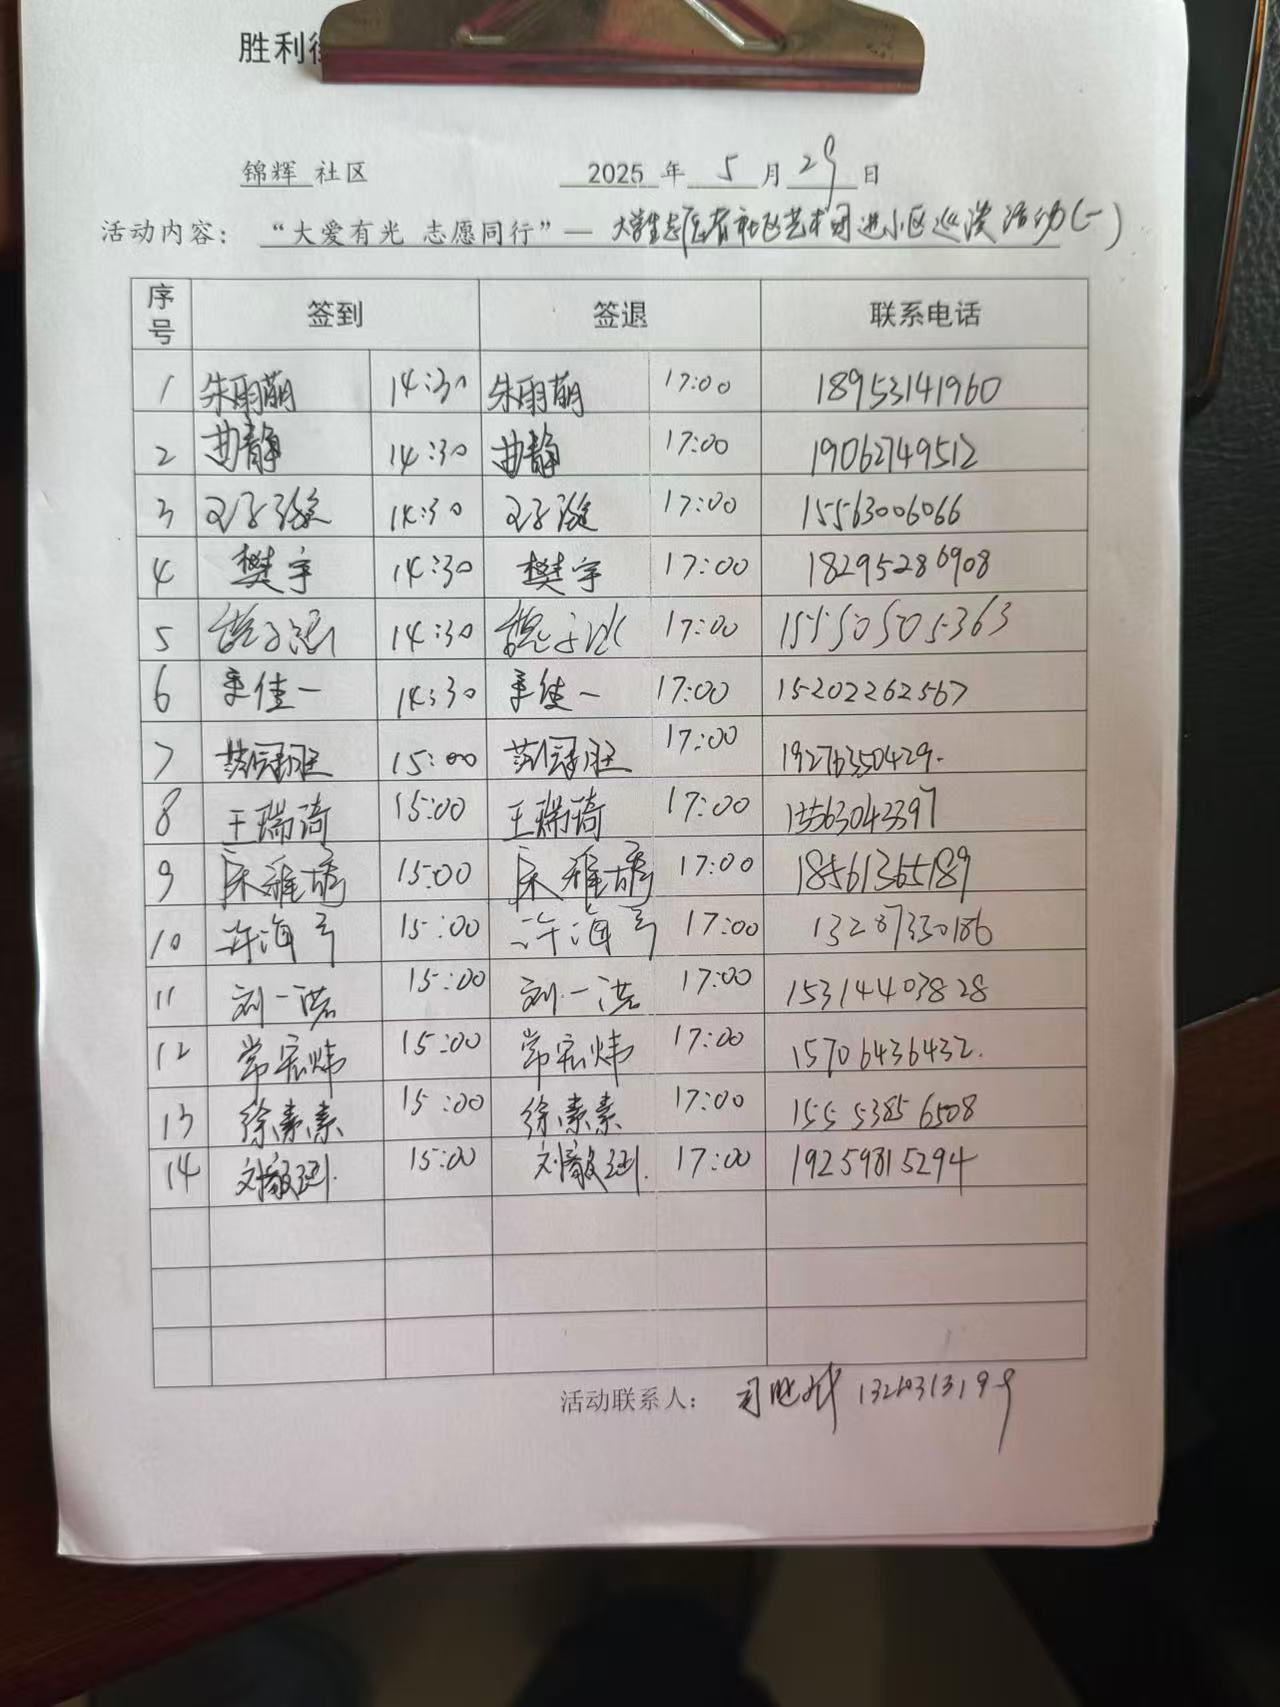 胜利街
锦辉 社区 2025 年 5 月 29 日
活动内容: “大爱有光 志愿同行”— 大学生志愿者社区艺术团进小区巡演活动(一)
序号 签到 签退 联系电话
1 朱雨萌 14:30 朱雨萌 17:00 18953141960
2 曲静 14:30 曲静 17:00 19062749512
3 14:30 17:00 15563006066
4 樊宇 14:30 樊宇 17:00 18295286908
5 14:30 17:00 15550505363
6 佳一 14:30 佳一 17:00 15202262567
7 15:00 17:00 19276350429.
8 王瑞琦 15:00 王瑞琦 17:00 15563043397
9 15:00 17:00 18561365189
10 许海 15:00 许海 17:00 13287330186
11 刘一 15:00 刘一 17:00 15314403828
12 常宏炜 15:00 常宏炜 17:00 15706436432.
13 徐素素 15:00 徐素素 17:00 15553856508
14 刘 15:00 刘 17:00 19259815294
活动联系人: